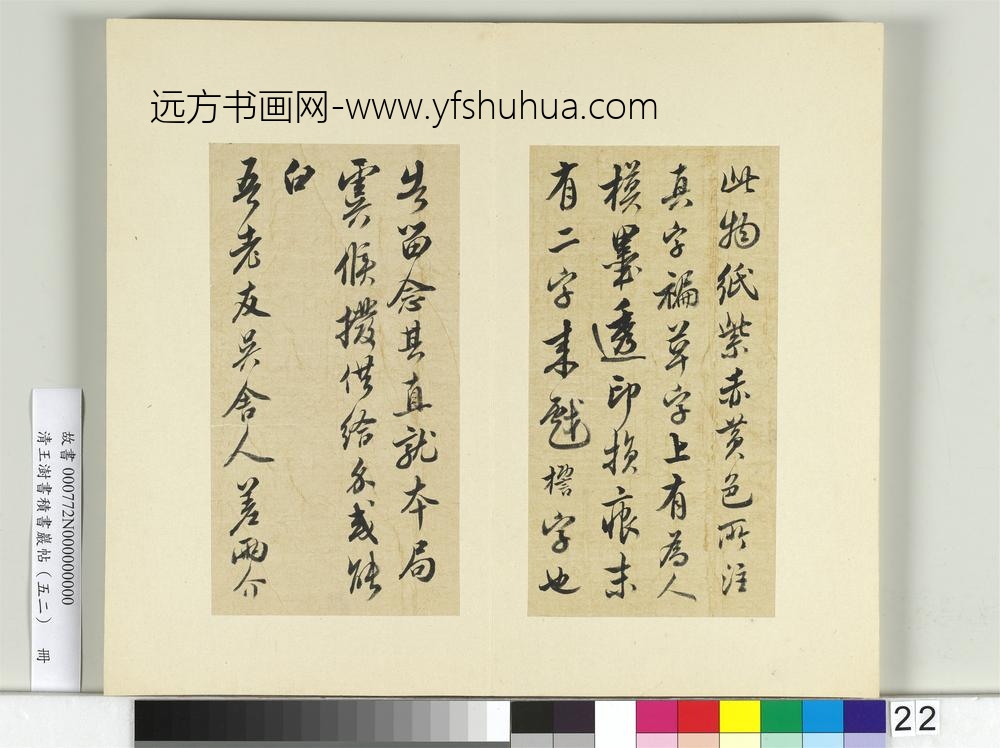 远方书画网-www.yfshuhua.com
此物紙紫赤黃色所注
真字褊草字上有為人
模墨透印損痕末
有二字來戲字也
告留念其直就本局
虞候撥供給尒或
白
吾老友吳舍人差兩介
故書 000772N000000000
清王澍書積書巖帖（五二） 冊
22